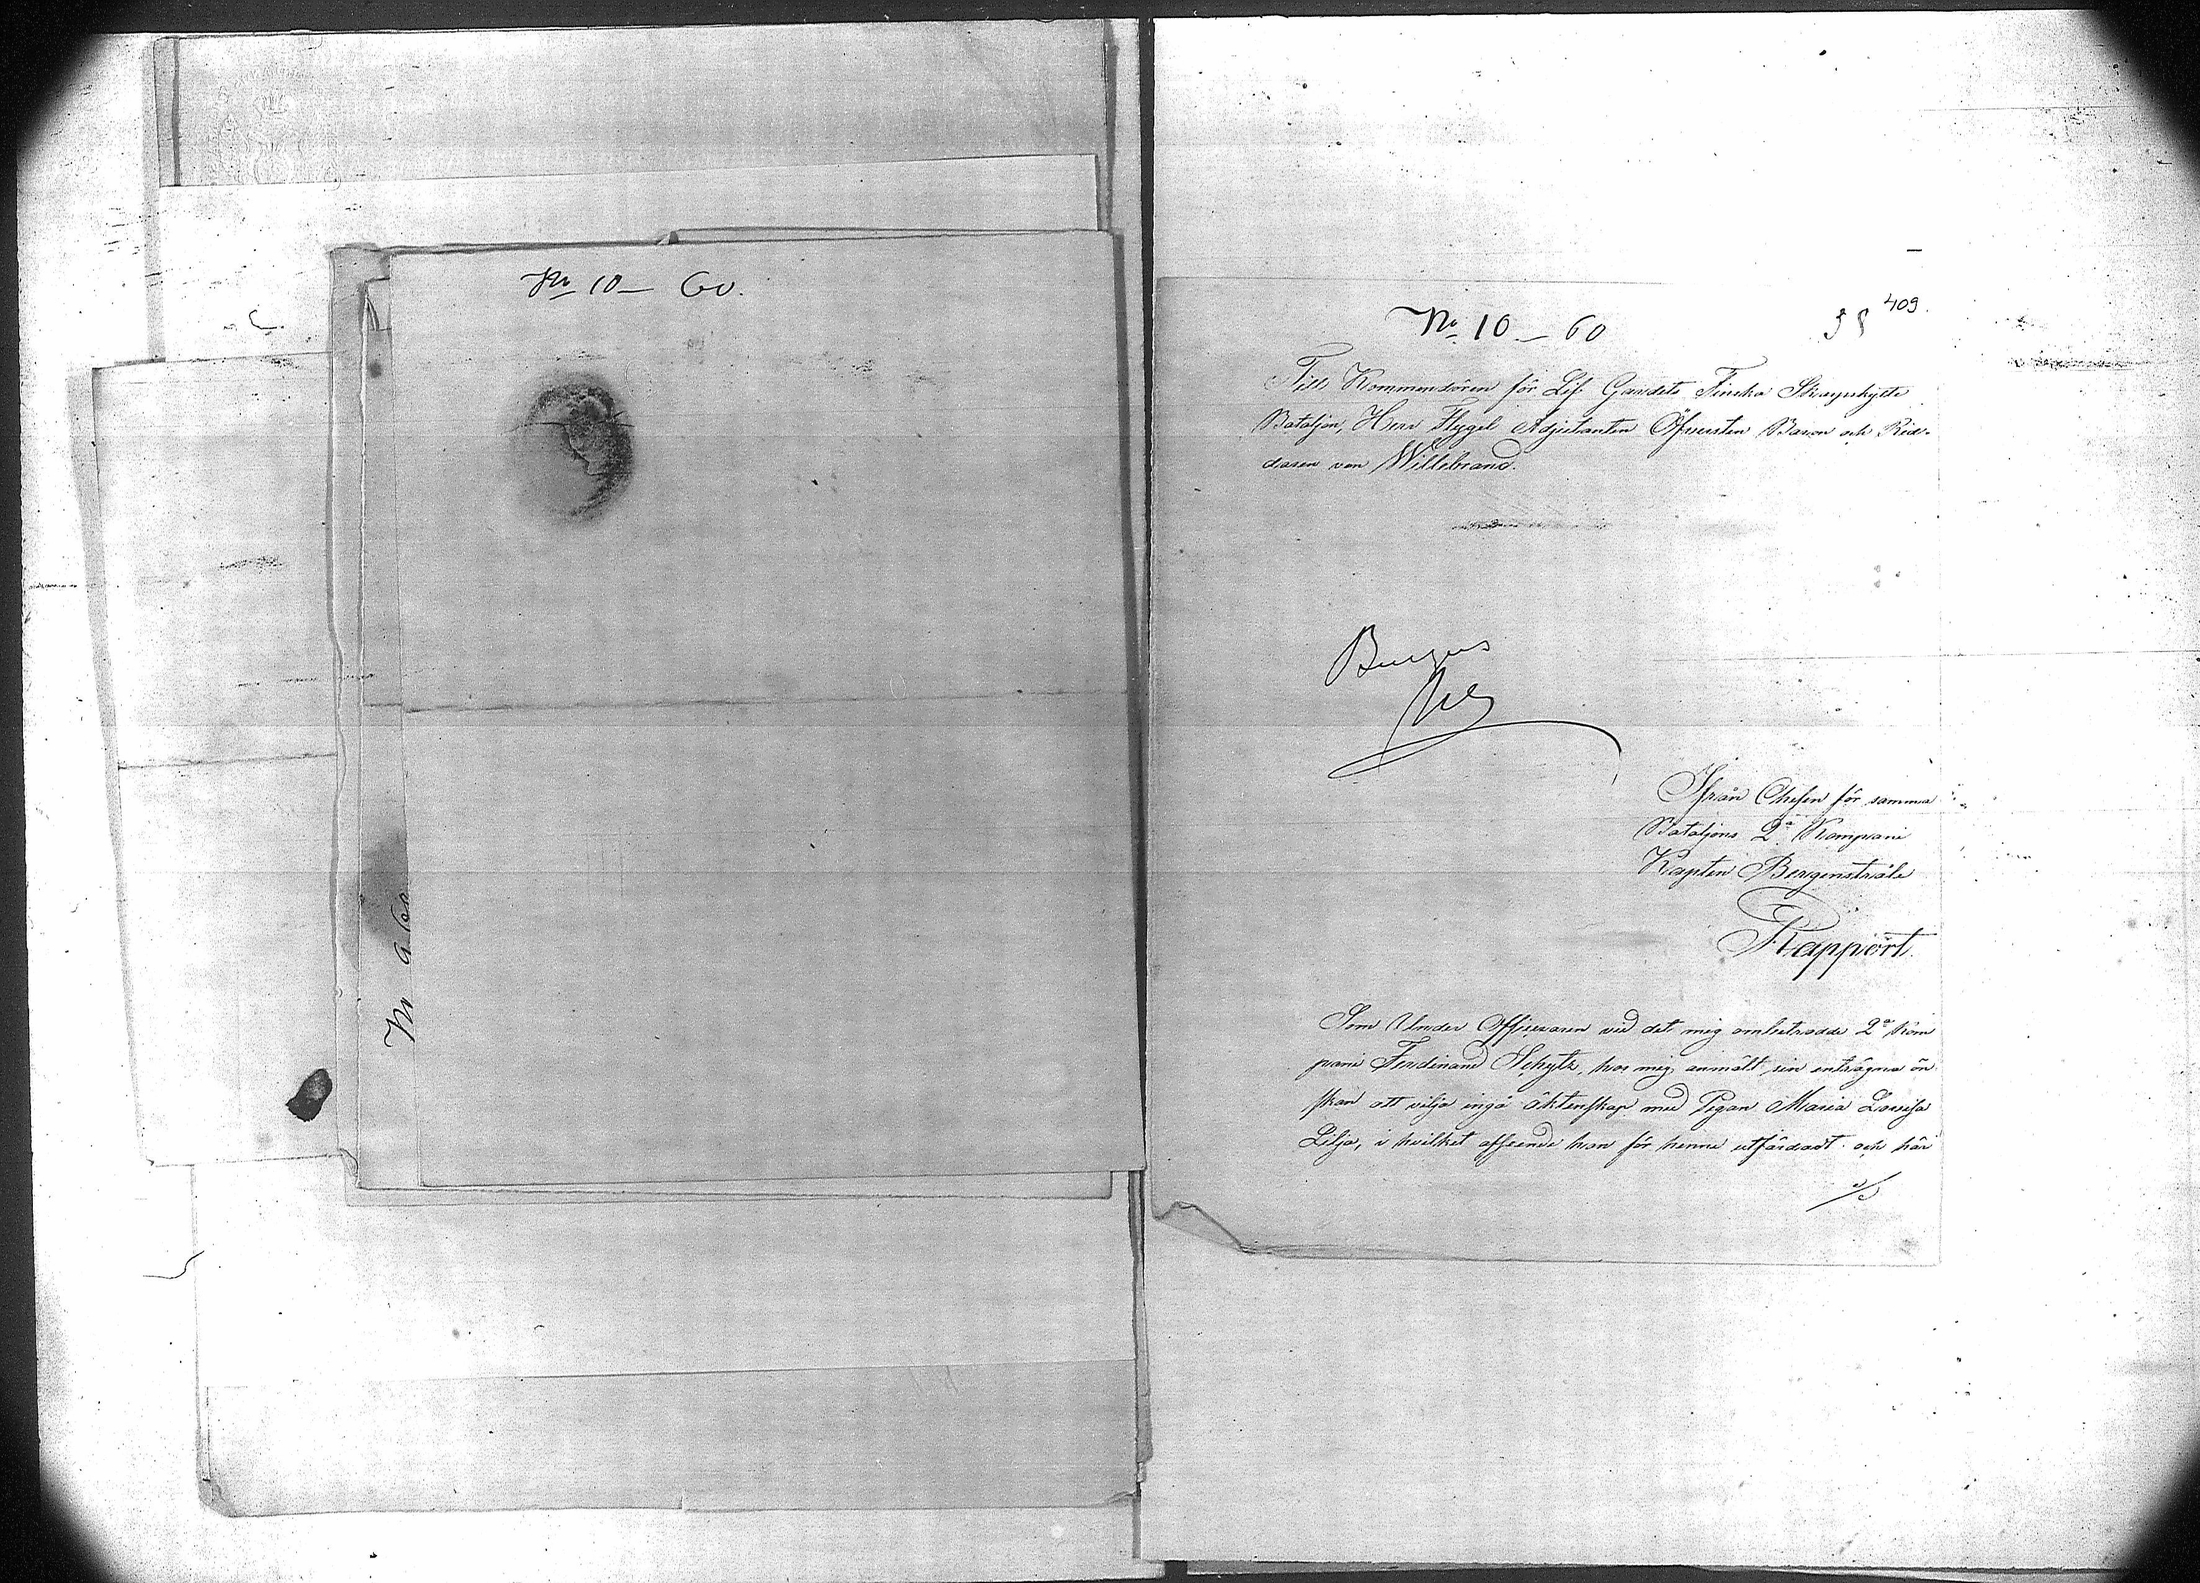 No 10 — 60.
No 9 60
409.
No 10 — 60
58
Till Kommendören för Lif Gardets Finska Skarpskytte
Bataljon, Herr Flygel Adjutanten Öfversten Baron och Rid-
daren von Willebrand.
Ifrån Chefen för samma
Bataljons 2a Kompani
Kapten Bergenstråle
Rapport.
Som Under Officeraren vid det mig ombetrodda 2a Kom
pani Ferdinand Schytz, hos mig anmält sin enträgna ön
skan att vilja ingå äktenskap med Pigan Maria Lovisa
Lilja, i hvilket afseende han för henne utfärdadt och här